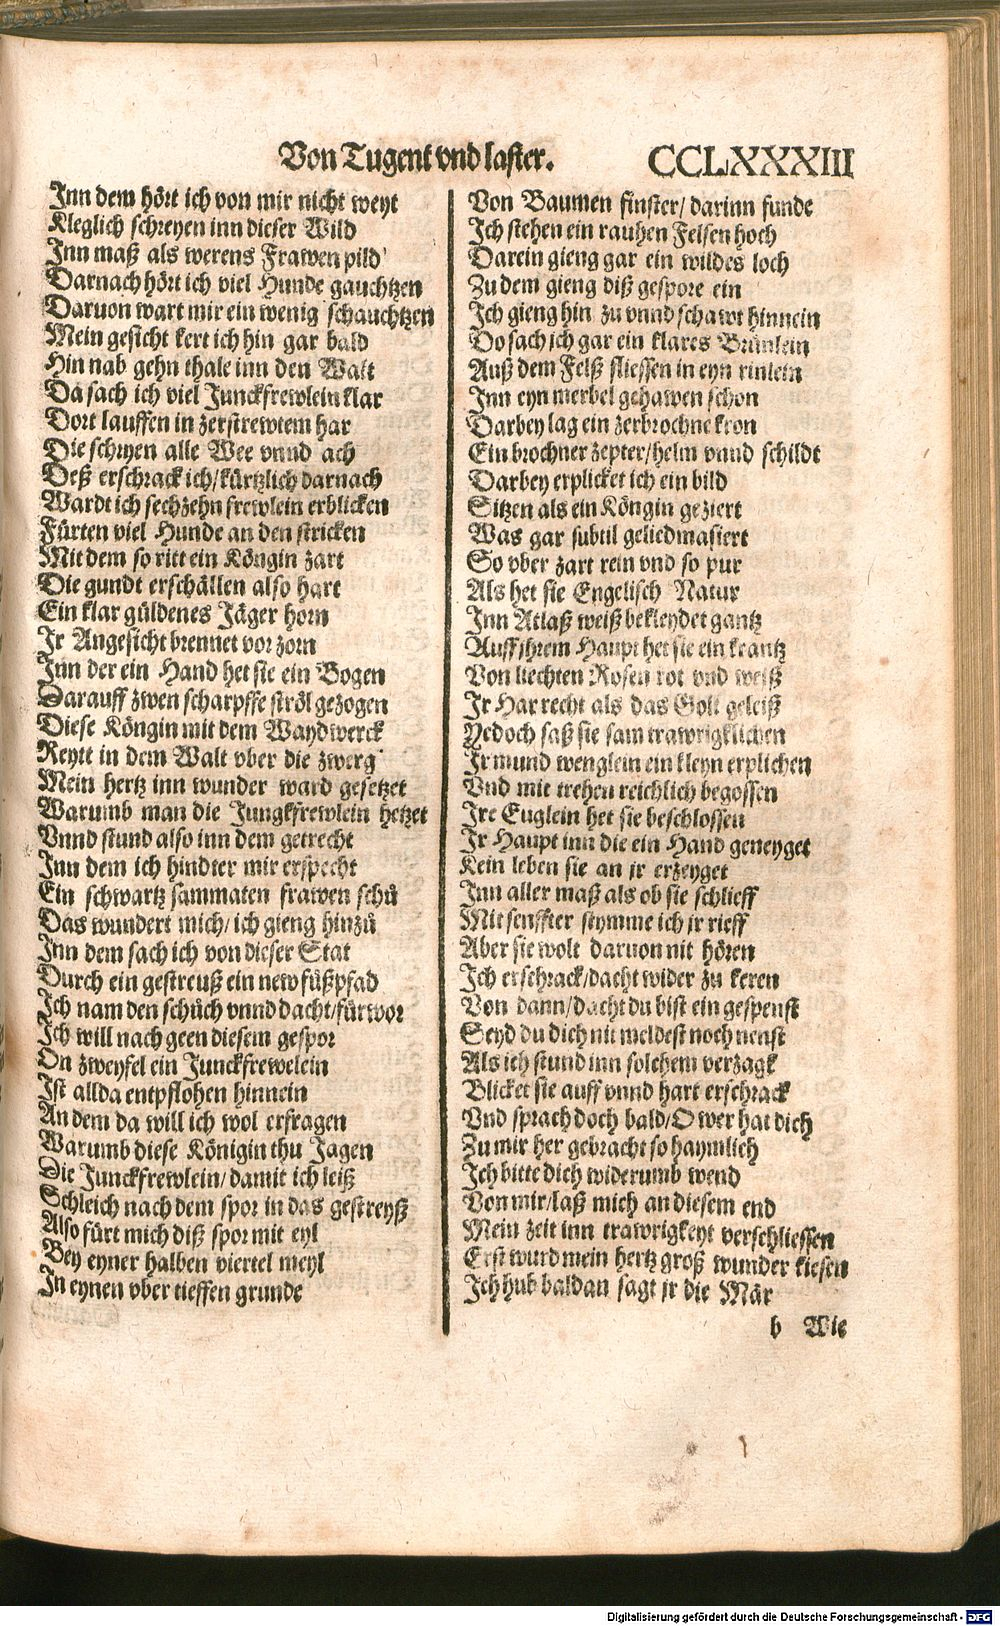 Von Tugent vnd laster. CCLXXXIII
Inn dem hört ich von mir nicht weyt
Kleglich schreyen inn dieser Wild
Inn maß als werens Frawen pild
Darnach hört ich viel Hunde gauchtzen
Daruon wart mir ein wenig schauchtzen
Mein gesicht kert ich hin gar bald
Hin nab gehn thale inn den Walt
Da sach ich viel Junckfrewlein klar
Dort lauffen in zerstrewtem har
Die schryen alle Wee vnnd ach
Deß erschrack ich/kürtzlich darnach
Wardt ich sechzehn frewlein erblicken
Fürten viel Hunde an den stricken
Mit dem so ritt ein Köngin zart
Die gundt erschällen also hart
Ein klar güldenes Jäger horn
Ir Angesicht brennet vor zorn
Inn der ein Hand het sie ein Bogen
Darauff zwen scharpffe ströl gezogen
Diese Köngin mit dem Waydwerck
Reytt in dem Walt vber die zwerg
Mein hertz inn wunder ward gesetzet
Warumb man die Jungkfrewlein hetzet
Vnnd stund also inn dem getrecht
Inn dem ich hindter mir erspecht
Ein schwartz sammaten frawen schů
Das wundert mich/ich gieng hinzů
Inn dem sach ich von dieser Stat
Durch ein gestreuß ein new fůßpfad
Ich nam den schůch vnnd dacht/fürwor
Ich will nach geen diesem gespor
On zweyfel ein Junckfrewelein
Ist allda entpflohen hinnein
An dem da will ich wol erfragen
Warumb diese Königin thu Jagen
Die Junckfrewlein/damit ich leiß
Schleich nach dem spor in das gestreyß
Also fürt mich diß spor mit eyl
Bey eyner halben viertel meyl
In eynen vber tieffen grunde
Von Baumen finster/darinn funde
Ich stehen ein rauhen Felsen hoch
Darein gieng gar ein wildes loch
Zu dem gieng diß gespore ein
Ich gieng hin zu vnnd schawt hinnein
Do sach ich gar ein klares Brünlein
Auß dem Felß fliessen in eyn rinlein
Inn eyn merbel gehawen schon
Darbey lag ein zerbrochne kron
Ein brochner zepter/helm vnnd schildt
Darbey erplicket ich ein bild
Sitzen als ein Köngin geziert
Was gar subtil geliedmasiert
So vber zart rein vnd so pur
Als het sie Engelisch Natur
Inn Atlaß weiß bekleydet gantz
Auff jhrem Haupt het sie ein krantz
Von liechten Rosen rot vnd weiß
Ir Har recht als das Golt geleiß
Yedoch saß sie sam trawrigklichen
Ir mund wenglein ein kleyn erplichen
Vnd mit trehen reichlich begossen
Ire Euglein het sie beschlossen
Ir Haupt inn die ein Hand geneyget
Kein leben sie an jr erzeyget
Inn aller maß als ob sie schlieff
Mit senffter stymme ich jr rieff
Aber sie wolt daruon nit hören
Ich erschrack/dacht wider zu keren
Von dann/dacht du bist ein gespenst
Seyd du dich nit meldest noch nenst
Als ich stund inn solchem verzagk
Blicket sie auff vnnd hart erschrack
Vnd sprach doch bald/O wer hat dich
Zu mir her gebracht so haymlich
Ich bitte dich widerumb wend
Von mir/laß mich an diesem end
Mein zeit inn trawrigkeyt verschliessen
Erst wurd mein hertz groß wunder kiesen
Ich hub bald an sagt jr die Mär
b Wie
Digitalisierung gefördert durch die Deutsche Forschungsgemeinschaft - DFG